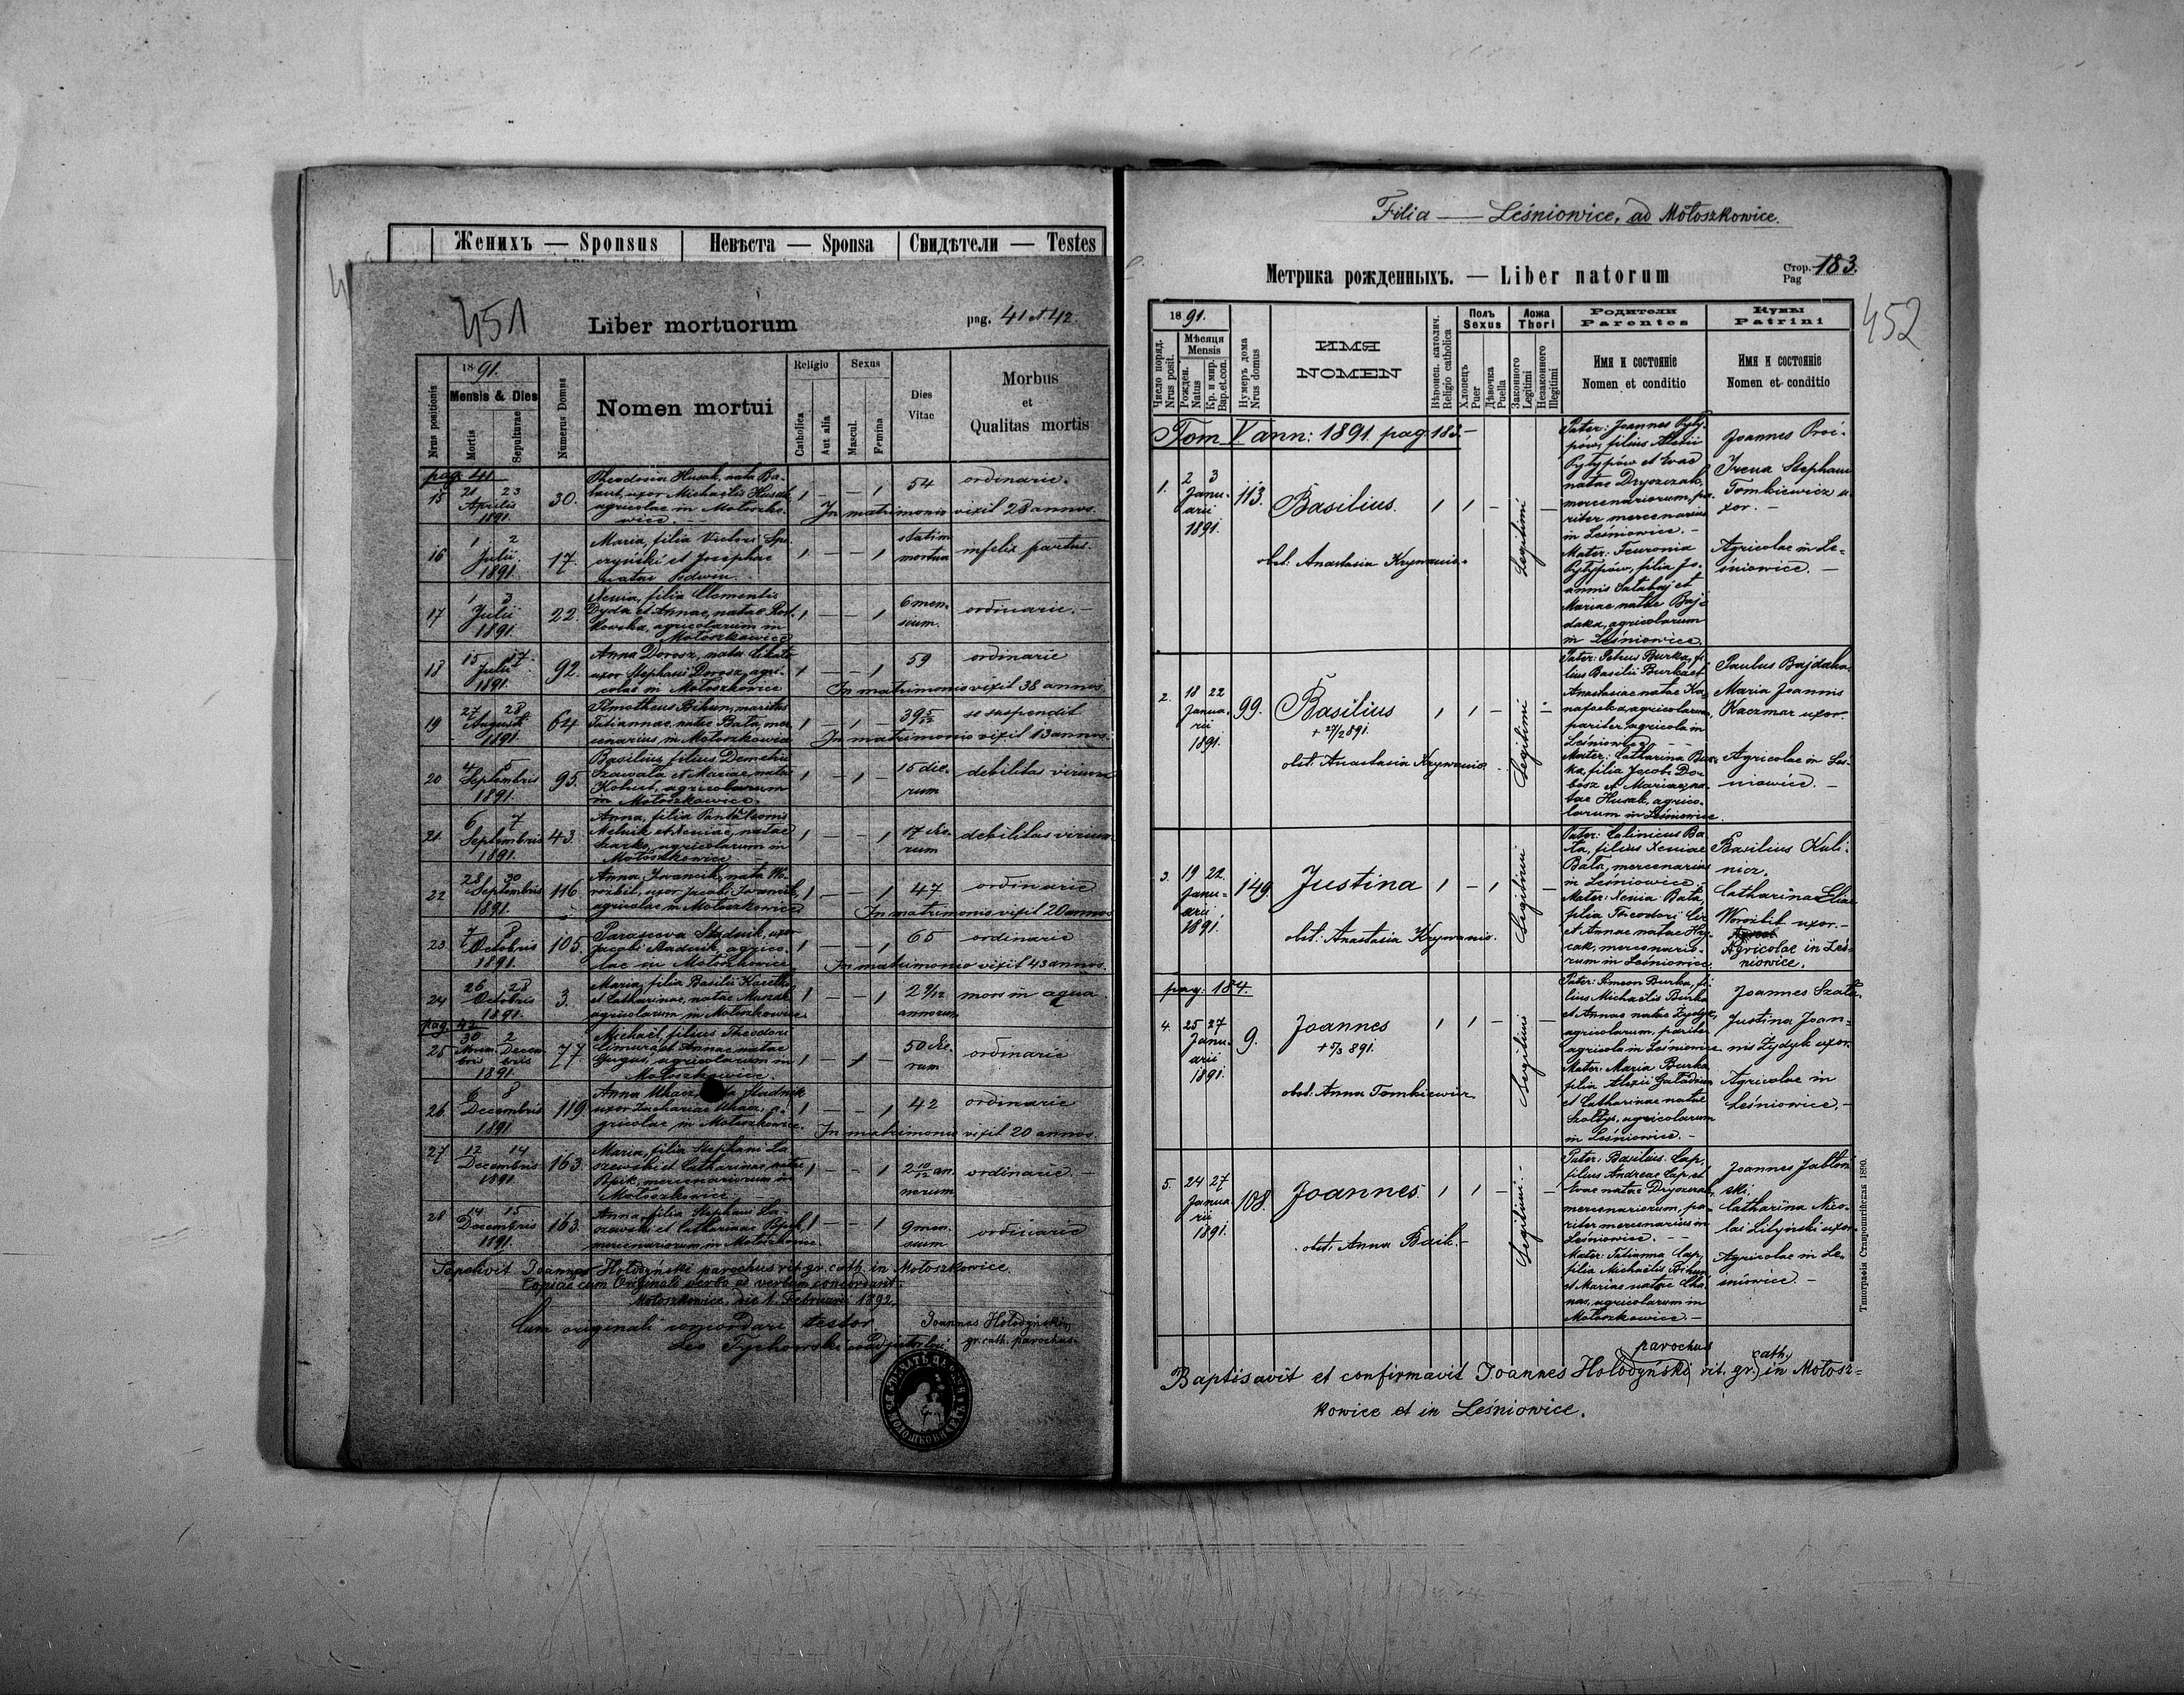 Женихъ — Sponsus
Невѣста — Sponsa
Свидѣтели — Testes
451
Liber mortuorum
pag. 41 et 42.
Nrus positionis
1891.
Mensis & Dies
Mortis
Sepulturae
Numerus Domus
Nomen mortui
Religio
Catholica
Aut alia
Sexus
Mascul.
Femina
Dies
Vitae
Morbus
et
Qualitas mortis
pag. 41
15
21 23
Aprilis
1891.
30.
Theodosia Husak, nata Ba-
uxor Michaelis Husak
agricolae in Mołoszko-
wice.
1 — — 1
54
ordinarie.
In matrimonio vixit 28 annos.
16
1 2
Julii
1891.
17.
Maria, filia Victori
et Josephae
natae
1 — — 1
statim
mortua
infelix partus.
17
1 3
Julii
1891.
22.
Xenia, filia Clementis
Dyda et Annae, natae
agricolarum in
Mołoszkowice
1 — — 1
6 men-
sium.
ordinarie.—
18
15 17
Julii
1891.
92.
Anna Dorosz, nata
uxor Stephani Dorosz, agri-
colae in Mołoszkowice
1 — — 1
59
ordinarie
In matrimonio vixit 38 annos.
19
27 28
Augusti
1891.
64
Timotheus Bihun, maritus
Tatiannae, natae Bata, mer-
cenarius in Mołoszkowice
1 — 1 —
39 5/12
se suspendit
In matrimonio vixit 13 annos.
20
4 5
Septembris
1891.
95.
Basilius filius Demetrii
Szawała et Mariae natae
Kohut, agricolarum
in Mołoszkowice.
1 — 1 —
15 die-
rum
debilitas virium
21.
6 7
Septembris
1891.
43.
Anna, filia Pantaleonis
Melnik et Xeniae, natae
Szarko, agricolarum in
Mołoszkowice
1 — — 1
17 die-
rum
debilitas virium
22
28 30
Septembris
1891.
116
Anna Iwancik, nata Wo-
robil, uxor Jacobi Iwancik,
agricolae in Mołoszkowice
1 — — 1
47
ordinarie
In matrimonio vixit 20 annos
23.
7 8
Octobris
1891.
105.
Parasceva Stadnik, uxor
Jacobi Stadnik, agrico-
lae in Mołoszkowice
1 — — 1
65
ordinarie
In matrimonio vixit 43 annos.
24
26 28
Octobris
1891.
3.
Maria, filia Basilii
et Catharinae, natae Muszak
agricolarum in Mołoszkowice.
1 — — 1
2 9/12
annorum
mors in aqua
pag. 42
25
30 2
Novem- Decem-
bris bris
1891.
77.
Michael, filius Theodori
Cimura et Annae natae
Gurgus, agricolarum in
Mołoszkowice.
1 — 1 —
50 die-
rum
ordinarie
26.
6 8
Decembris
1891
119.
Anna Uhacz, Stadnik
uxor Zachariae Uhacz, a-
gricolae in Mołoszkowice.
1 — — 1
42
ordinarie
In matrimonio vixit 20 annos.
27
12 14
Decembris
1891.
163.
Maria, filia Stephani La-
szewski et Catharinae, natae
Bpik, mercenariorum in
Mołoszkowice
1 — — 1
2 10/12 an-
norum
ordinarie.—
28
14 15
Decembris
1891.
163.
Anna, filia Stephani La-
szewski et Catharinae Bpik,
mercenariorum in Mołoszkowice
1 — — 1
9 men-
sium
ordinarie
Sepelivit Joannes Hołodyński parochus rit. gr. cath. in Mołoszkowice.
Copiae cum Originali verbo ad verbum concordant.
Mołoszkowice, die 1. Februarii 1892.
Joannes Hołodyński
gr. cath. parochus
Cum originali concordari testor
Leo Tychowski
Filia — Leśniowice, ad Mołoszkowice.
Метрика рожденныхъ. — Liber natorum
Стор.
Pag
183.
452
Число поряд.
Nrus posit.
1891.
Мѣсяця
Mensis
Рожден.
Natus
Кр. и мир.
Bap. et con.
Нумеръ дома
Nrus domus
ИМЯ
NOMEN
Вѣроисп. католич.
Religio catholica
Полъ
Sexus
Хлопецъ
Puer
Дѣвочка
Puella
Ложа
Thori
Законного
Legitimi
Незаконного
Illegitimi
Родители
Parentes
Имя и состояніе
Nomen et conditio
Кумы
Patrini
Имя и состояніе
Nomen et conditio
Tom V ann: 1891. pag. 183.—
1.
2 3
Janu-
arii
1891.
113.
Basilius.
obst: Anastasia Krywanio.
1 1 — Legitimi —
Pater: Joannes Pyty-
pów, filius Alexii
Pytypów et Evae
natae Dryszczak,
mercenariorum, pa-
riter mercenarius
in Leśniowice.—
Mater: Feuronia
Pytypów, filia Jo-
annis Sałabaj et
Mariae natae Baj-
daka, agricolarum
in Leśniowice.
Joannes Proć-
Irena Stephani
Tomkiewicz u-
xor.—
Agricolae in Le-
śniowice.—
2.
18 22
Janua-
rii
1891.
99.
Basilius
+ 27/2 891.
obst: Anastasia Krywanio
1 1 — Legitimi —
Pater: Petrus Burka, fi-
lius Basilii Burka et
Anastasiae natae Ka-
nafocka, agricolarum,
pariter agricola in
Leśniowice —
Mater: Catharina Bur-
ka, filia Jacobi Dor-
bosz et Mariae, na-
tae Husak, agrico-
larum in Leśniowice.
Paulus Bajdaka.
Maria Joannis
Kaczmar uxor.
Agricolae in Leś-
niowice.—
3.
19 22.
Janu-
arii
1891.
149.
Justina
obst: Anastasia Krywanio.
1 — 1 Legitimi —
Pater: Calinicus Ba-
ta, filius Xeniae
Bata, mercenarius
in Leśniowice.
Mater: Xenia Bata,
filia Theodori
et Annae natae Hry-
cak, mercenario-
rum in Leśniowice.
Basilius Kuli-
nicz.
Catharina Eliae
Worobil uxor.—
Agricolae in Leś-
niowice.
pag. 184.
4.
25 27
Janu-
arii
1891.
9.
Joannes
+ 7/3 891.
obst: Anna Tomkiewicz
1 1 — Legitimi —
Pater: Simeon Burka, fi-
lius Michaelis Burka
et Annae natae Żydyk,
agricolarum, pariter
agricola in Leśniowice
Mater: Maria Burka
filia Alexii
et Catharinae natae
Szołtys, agricolarum
in Leśniowice.—
Joannes Szała.
Justina Joan-
nis Żydyk uxor.
Agricolae in
Leśniowice.—
5.
24 27
Janua-
rii
1891.
108.
Joannes.
obst: Anna Baik.—
1 1 — Legitimi.— —
Pater: Basilius Cap,
filius Andreae Cap, et
Evae natae Dryszczak,
mercenariorum, pa-
riter mercenarius in
Leśniowice.—
Mater: Tatianna Cap,
filia Michaelis Bihun
et Mariae natae Cha-
nas, agricolarum in
Mołoszkowice.—
Joannes Jabłoń-
ski.
Catharina Nico-
lai Liłyński uxor.
Agricolae in Le-
śniowice.—
Типографія Ставропигійская 1890.
Baptisavit et confirmavit Joannes Hołodyński parochus rit. gr. cath. in Mołosz-
kowice et in Leśniowice.